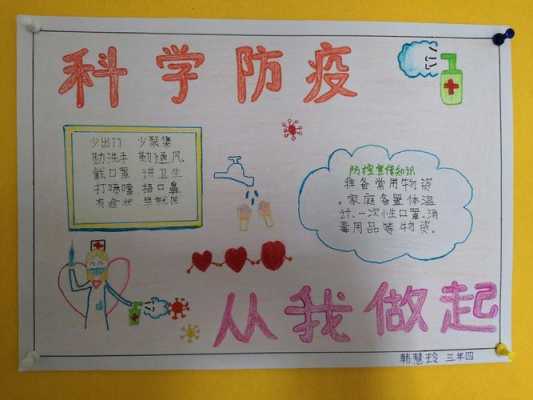 科学防疫
少出门 少聚集
勤洗手 勤通风
戴口罩 讲卫生
打喷嚏 捂口鼻
有症状 早就医
防控宣传知识
准备常用物资
.家庭备置体温
计、一次性口罩、消
毒用品等物资。
从我做起
韩慧玲 三年四